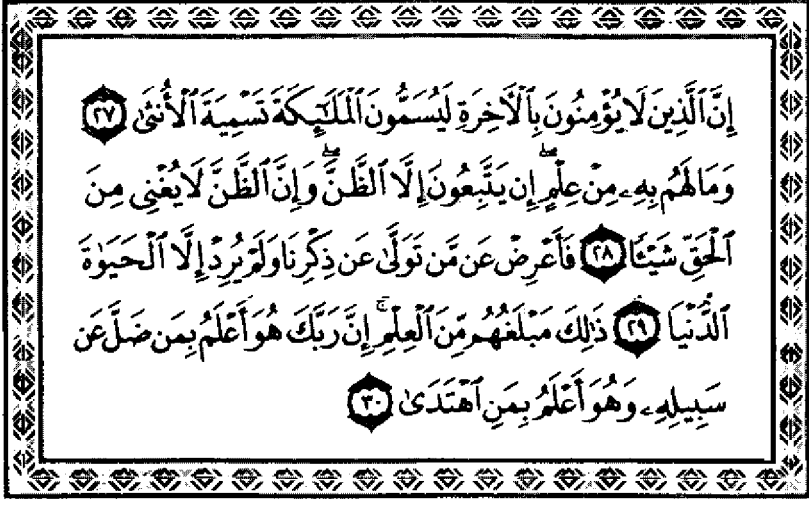 إِنَّ ٱلَّذِينَ لَا يُؤْمِنُونَ بِٱلْأَخِرَةِ لَيُسَمُّونَ ٱلْمَلَٰٓئِكَةَ تَسْمِيَةَ ٱلْأُنثَىٰ ٢٧
وَمَا لَهُم بِهِۦ مِنْ عِلْمٍ ۖ إِن يَتَّبِعُونَ إِلَّا ٱلظَّنَّ ۖ وَإِنَّ ٱلظَّنَّ لَا يُغْنِى مِنَ
ٱلْحَقِّ شَيْـًٔا ٢٨ فَأَعْرِضْ عَن مَّن تَوَلَّىٰ عَن ذِكْرِنَا وَلَمْ يُرِدْ إِلَّا ٱلْحَيَوٰةَ
ٱلدُّنْيَا ٢٩ ذَٰلِكَ مَبْلَغُهُم مِّنَ ٱلْعِلْمِ ۚ إِنَّ رَبَّكَ هُوَ أَعْلَمُ بِمَن ضَلَّ عَن
سَبِيلِهِۦ وَهُوَ أَعْلَمُ بِمَنِ ٱهْتَدَىٰ ٣٠